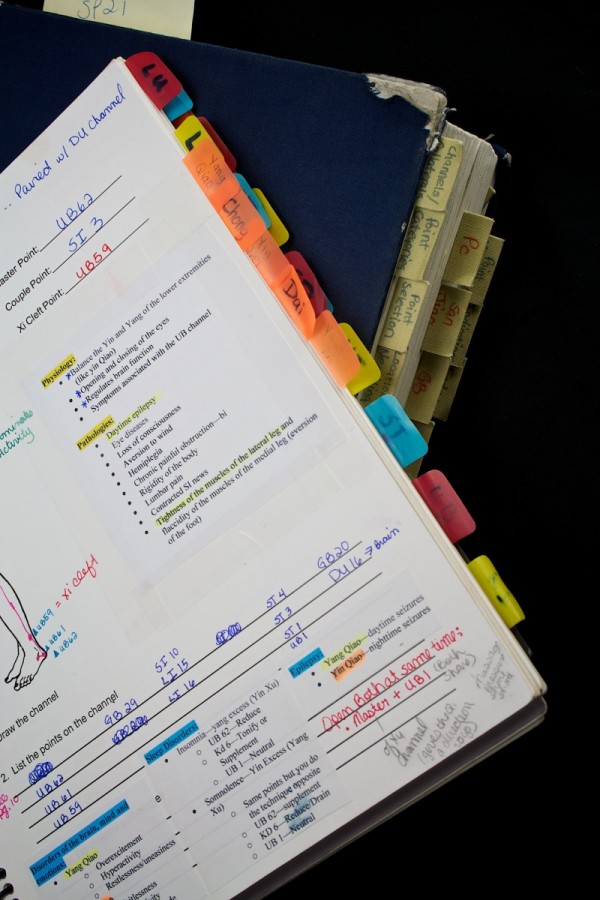 SP21
LU
... Paired w/ DU Channel
Master Point: UB62
Couple Point: SI 3
Xi Cleft Point: UB59
Yang Qiao
Chong
Dai
ST
Channels/
Point
Categories
Point
Selection
PC
Point
San
Jiao
GB
Physiology:
*Balance the Yin and Yang of the lower extremities
(like yin Qiao)
*Opening and closing of the eyes
*Regulates brain function
Symptoms associated with the UB channel
Pathologies:
Daytime epilepsy
Eye diseases
Loss of consciousness
Aversion to wind
Hemiplegia
Chronic painful obstruction—bi
Rigidity of the body
Lumbar pain
Contracted SI news
Tightness of the muscles of the lateral leg and
flaccidity of the muscles of the medial leg (eversion
of the foot)
Activity
UB59 = xi cleft
UB61
UB62
Draw the channel
2. List the points on the channel
UB62
UB61
UB59
GB29
SI 10
LI 15
LI 16
ST 4
ST 3
ST 1
UB1
GB20
DU16 → Brain
pg. 10
Disorders of the brain, mind and
emotions:
Yang Qiao
Overexcitement
Hyperactivity
Restlessness/uneasiness
Shen Disorders:
Insomnia—yang excess (Yin Xu)
UB 62—Reduce
Kd 6—Tonify or
Supplement
UB 1—Neutral
Somnolence—Yin Excess (Yang
Xu)
Same points but you do
the technique opposite
UB 62—supplement
KD 6—Reduce/Drain
UB 1—Neutral
Epilepsy:
Yang Qiao—daytime seizures
Yin Qiao—nighttime seizures
Open Both at same time:
• Master + UB1
channel